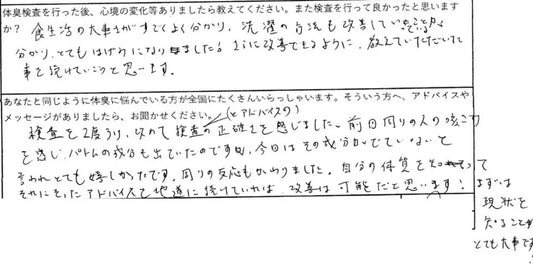 体臭検査を行った後、心境の変化等ありましたら教えてください。また検査を行って良かったと思いますか？
食生活の大事さがすごくよく分かり、洗濯の方法も改善していきたい
分かり、とてもはげみになりました。さらに改善できるように、教えていただいた
事を続けていこうと思います。
あなたと同じように体臭に悩んでいる方が全国にたくさんいらっしゃいます。そういう方へ、アドバイスや
メッセージがありましたら、お聞かせください。
(とアドバイスの)
検査を2度うけ、改めて検査の正確さを感じました。前回周りの人の
を感じ、パトムの成分も出ていたのですが、今回はその成分がでていないと
言われとても嬉しかったです。周りの反応もかわりました。自分の体質をもって
それにそったアドバイスで地道に続けていれば、改善は可能だと思います！
まずは
現状を
知ることが
とても大事です！